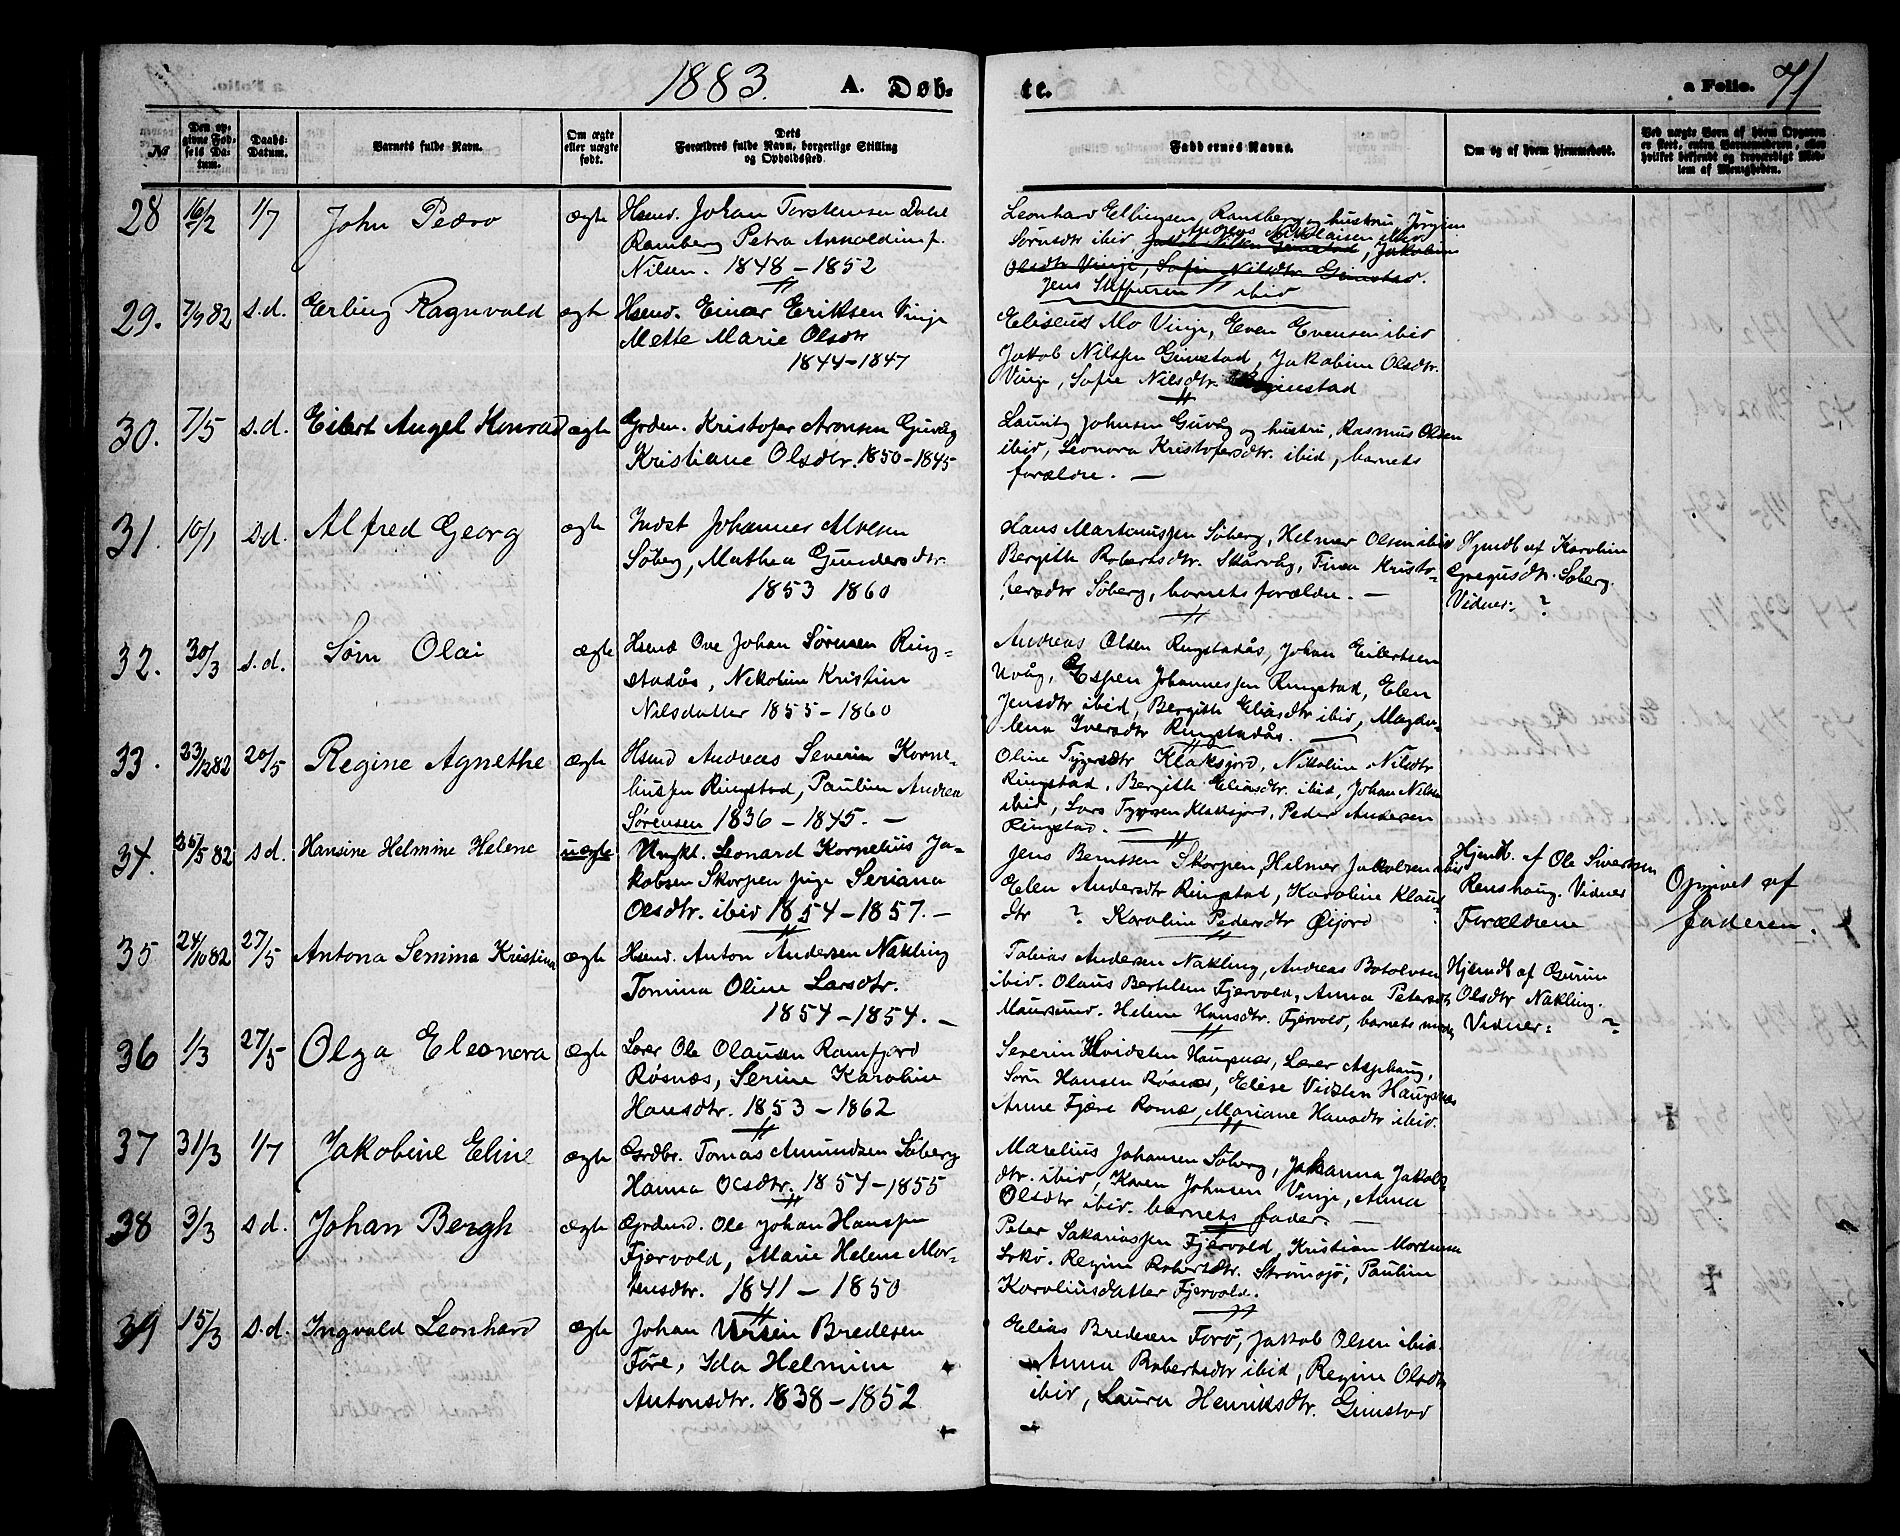 1883. A. Døb- te. a Folio. 71
№
Den opgivne Fødsels Datum.
Daabs-Datum.
Barnets fulde Navn.
Om ægte eller uægte født.
Dets Forældres fulde Navn, borgerlige Stilling og Opholdssted.
Faddernes Navne.
Om og af hvem hjemmedøbt.
Ved uægte Børn af hvem Opgaven er skeet, enten Barnemoderen, eller hvilket bekjendt og troværdigt Medlem af Menigheden.
28 16/2 1/7 John Pedro ægte Hsmd. Johan Torstensen Dahl
Ramberg Petra Arnoldine f.
Nilsen. 1848 – 1852
Leonhard Ellingsen, Ramberg og hustru, Jørgine
Sørnsdtr ibid Andreas Nikolaisen ibid
Jakob Nilsen Grimstad, Jakobine
Olsdtr Vinje, Sofie Nilsdtr. Grimstad.
Jens Steffensen ibid
29. 7/9 82 s.d. Erling Ragnvald ægte Hsmd. Einar Eriksen Vinje
Mette Marie Olsdtr
1844–1847
Eliseus Mo Vinje, Even Evensen ibid
Jakob Nilssen Grimstad, Jakobine Olsdtr.
Vinje, Sofie Nilsdtr. Grimstad
30. 7/5 s.d. Eilert Angel Konrad ægte Grdm. Kristofer Aronsen Guvåg
Kristiane Olsdtr. 1850–1845
Lauritz Johnsen Guvåg og hustru, Rasmus Olsen
ibid, Leonora Kristofersdtr. ibid, barnets
forældre. —
31. 10/1 s.d. Alfred Georg ægte Indst Johannes Olsen
Søberg, Mathea Gundersdtr.
1853 1860
Hans Martinussen Søberg, Helmer Olsen ibid
Bergitte Robertsdtr. Skårvåg, Trine Kristo-
fersdtr Søberg, barnets forældre. —
Hjmdb. af Karoline
Gregusdtr. Søberg.
Vidner: ?
32. 30/3 s.d. Sørn Olai ægte Hsmd Ove Johan Sørensen Ring-
stadås, Nikoline Kristine
Nilsdatter 1855–1860
Andreas Olsen Ringstadås, Johan Eilertsen
Uvåg, Espen Johannessen Ringstad, Elen
Jensdtr ibid, Bergitte Eliasdtr ibid, Magda-
lena Iversdtr Ringstadås. —
33. 23/12 82 20/5 Regine Agnethe ægte Hsmd Andreas Severin Korne-
liussen Ringstad, Pauline Andrea
Sørensen 1836 – 1845. —
Oline Tygersdtr Klaksjord, Nikoline Nilsdtr
Ringstad, Bergitte Eliasdtr. ibid, Johan Nilsen
ibid, Lars Tygersen Klaksjord, Peder Andersen
Ringstad. —
34. 25/5 82 s.d. Hansine Helmine Helene uægte Ungkl. Leonard Kornelius Ja-
kobsen Skorpen pige Seriana
Olsdtr. ibid 1854–1857. —
Jens Berntsen Skorpen, Helmer Jakobsen ibid
Elen Andersdtr Ringstad, Karoline Klaus-
dtr ? Karoline Pedersdtr Øijord
Hjemdb. af Ole Sivertsen
Renshaug. Vidner
Forældrene
Opgivet af
faderen.
35 24/10 82 27/5 Antona Semina Kristina ægte Hsmd. Anton Andersen Nakling
Tomina Oline Larsdtr.
1854–1854. —
Tobias Andersen Nakling, Andreas Botolvsen
ibid. Olaus Bertelsen Fjervold, Anna Petersdtr
Maursund. Helene Hansdtr. Fjervold, barnets moder
Hjemdb af Gurine
Olsdtr Nakling.
Vidner: ?
36 1/3 27/5 Olga Eleonora ægte Lærer Ole Olausen Ramfjord
Røsnæs, Serine Karoline
Hansdtr. 1853–1862
Severin Hvidsten Haugsnæs, Lærer Asphaug,
Sørn Hansen Røsnæs, Elise Vidsten Haugsnæs
Anne Fjære Romæs, Mariane Hansdtr ibid.
37 31/3 1/7 Jakobine Eline ægte Grdbr. Tomas Amundsen Søberg
Hanna Olsdtr. 1854–1855
Marelius Johansen Søberg, Johanna Jakobs-
dtr. ibid, Karen Johnsen Vinje, Anna
Olsdtr ibid. barnets fader. —
38 3/3 s.d. Johan Bergh ægte Grdmd. Ole Johan Hanssen
Fjervold, Marie Helene Mor-
tensdtr. 1841 – 1850
Peter Sakariassen Fjervold, Kristian Mortensen
Regine Robertsdtr. Strømsjø, Pauline
Karoliusdatter Fjervold.
39 15/3 s.d. Ingvald Leonhard ægte Johan Ursin Bredesen
Føre, Ida Helmine
Antonsdtr. 1838–1852
Elias Bredesen Førø, Jakob Olsen ibid.
Anna Robertsdtr ibid, Regine Olsdtr
ibid, Laura Henriksdtr. Grimstad